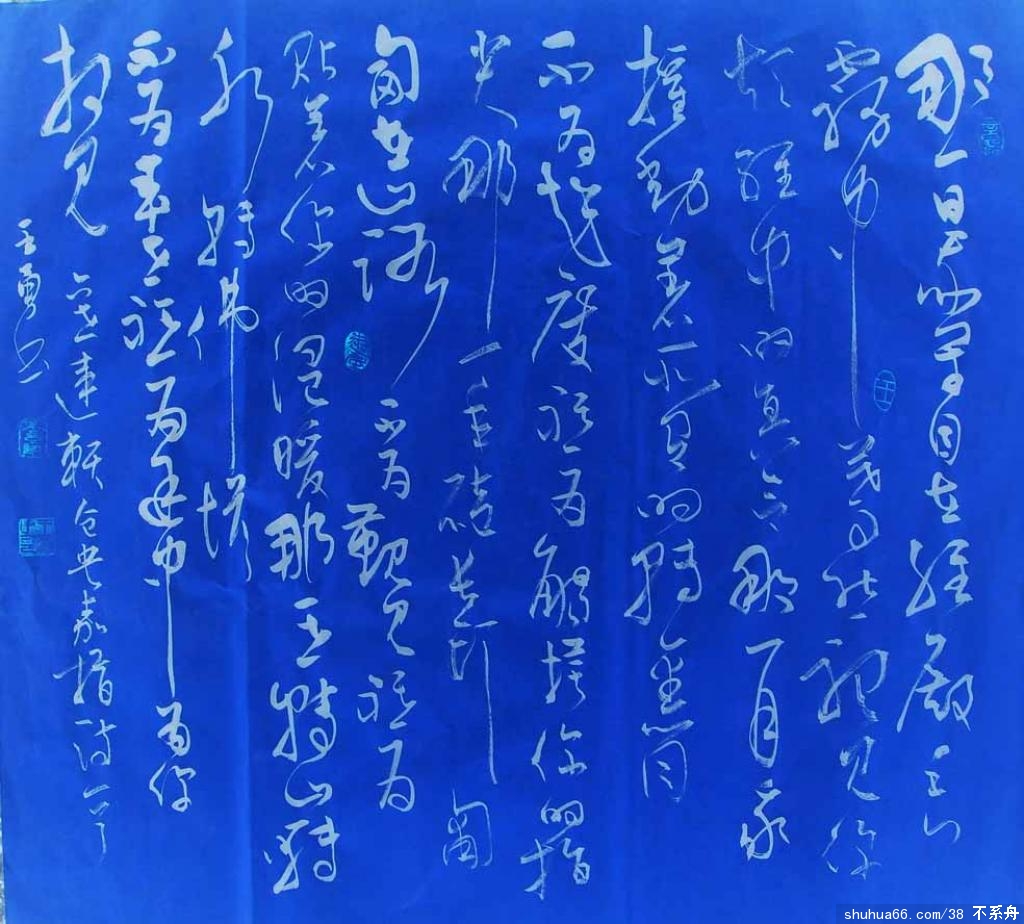 那一日闭目在经殿
雾中蓦然听见你
颂经中的真言那一月我
摇动着所有的转经筒
不为超度只为触摸你的指
尖那一年磕长头匍
匐在山路不为觐见只为
贴着你的温暖那一世转山转
水转佛塔
不为来世只为途中与你
相见 仓央嘉措诗一首
王勇书
shuhua66.com/38 不系舟